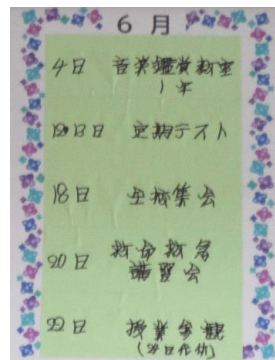 6月
4日 音楽鑑賞教室
1年
12・13日 定期テスト
18日 全校集会
20日 救命救急
講習会
22日 授業参観
(29日代休)